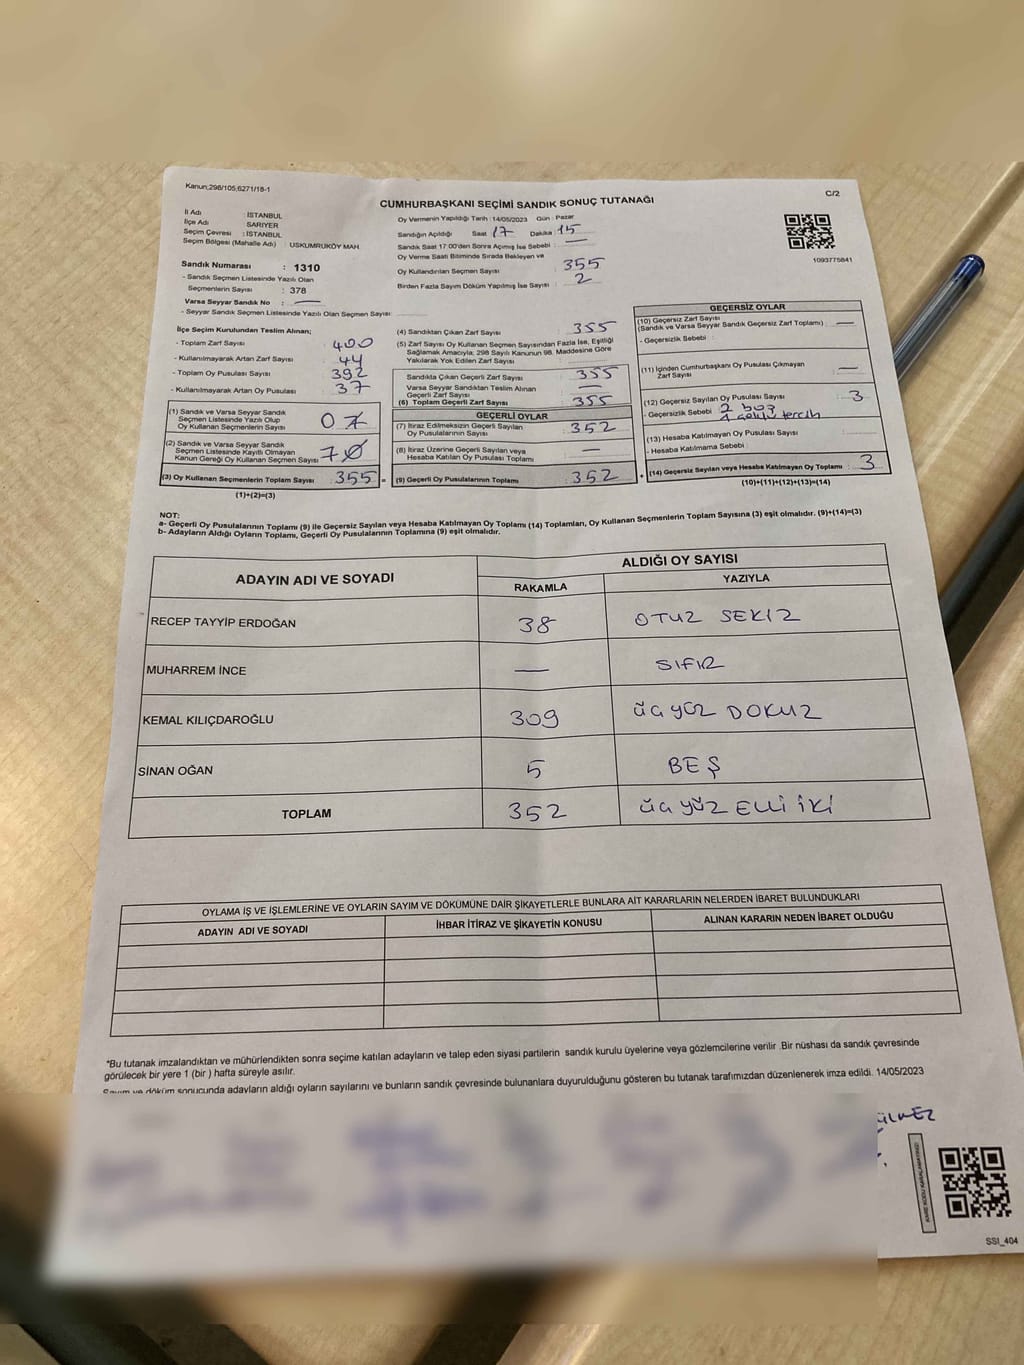 Kanun;298/105,6271/18-1
C/2
CUMHURBAŞKANI SEÇİMİ SANDIK SONUÇ TUTANAĞI
İl Adı : İSTANBUL
İlçe Adı : SARIYER
Seçim Çevresi : İSTANBUL
Seçim Bölgesi (Mahalle Adı) : USKUMRUKÖY MAH.
Sandık Numarası : 1310
- Sandık Seçmen Listesinde Yazılı Olan
Seçmenlerin Sayısı : 378
Varsa Seyyar Sandık No : —
- Seyyar Sandık Seçmen Listesinde Yazılı Olan Seçmen Sayısı:
Oy Vermenin Yapıldığı Tarih :14/05/2023 Gün : Pazar
Sandığın Açıldığı Saat 17 Dakika 15
Sandık Saat 17:00'den Sonra Açımış İse Sebebi : —
Oy Verme Saati Bitiminde Sırada Bekleyen ve
Oy Kullandırılan Seçmen Sayısı 355
Birden Fazla Sayım Döküm Yapılmış İse Sayısı : 2
1093775841
İlçe Seçim Kurulundan Teslim Alınan;
- Toplam Zarf Sayısı : 400
- Kullanılmayarak Artan Zarf Sayısı : 44
- Toplam Oy Pusulası Sayısı : 392
- Kullanılmayarak Artan Oy Pusulası : 37
(1) Sandık ve Varsa Seyyar Sandık
Seçmen Listesinde Yazılı Olup
Oy Kullanan Seçmenlerin Sayısı
(2) Sandık ve Varsa Seyyar Sandık
Seçmen Listesinde Kayıtlı Olmayan
Kanun Gereği Oy Kullanan Seçmen Sayısı
(3) Oy Kullanan Seçmenlerin Toplam Sayısı 355
(1)+(2)=(3)
(4) Sandıktan Çıkan Zarf Sayısı : 355
(5) Zarf Sayısı Oy Kullanan Seçmen Sayısından Fazla İse, Eşitliği
Sağlamak Amacıyla; 298 Sayılı Kanunun 98. Maddesine Göre
Yakılarak Yok Edilen Zarf Sayısı
Sandıkla Çıkan Geçerli Zarf Sayısı : 355
Varsa Seyyar Sandıktan Teslim Alınan
Geçerli Zarf Sayısı : —
(6) Toplam Geçerli Zarf Sayısı : 355
GEÇERLİ OYLAR
(7) İtiraz Edilmeksizin Geçerli Sayılan
Oy Pusulalarının Sayısı : 352
(8) İtiraz Üzerine Geçerli Sayılan veya
Hesaba Katılan Oy Pusulası Toplamı : —
= (9) Geçerli Oy Pusulalarının Toplamı : 352
GEÇERSİZ OYLAR
(10) Geçersiz Zarf Sayısı
(Sandık ve Varsa Seyyar Sandık Geçersiz Zarf Toplamı) : —
- Geçersizlik Sebebi :
(11) İçinden Cumhurbaşkanı Oy Pusulası Çıkmayan
Zarf Sayısı : —
(12) Geçersiz Sayılan Oy Pusulası Sayısı : 3
- Geçersizlik Sebebi 2 boş
1 tercih
(13) Hesaba Katılmayan Oy Pusulası Sayısı :
- Hesaba Katılmama Sebebi :
+ (14) Geçersiz Sayılan veya Hesaba Katılmayan Oy Toplamı : 3
(10)+(11)+(12)+(13)=(14)
NOT:
a- Geçerli Oy Pusulalarının Toplamı (9) ile Geçersiz Sayılan veya Hesaba Katılmayan Oy Toplamı (14) Toplamları, Oy Kullanan Seçmenlerin Toplam Sayısına (3) eşit olmalıdır. (9)+(14)=(3)
b- Adayların Aldığı Oyların Toplamı, Geçerli Oy Pusulalarının Toplamına (9) eşit olmalıdır.
ADAYIN ADI VE SOYADI
ALDIĞI OY SAYISI
RAKAMLA YAZIYLA
RECEP TAYYİP ERDOĞAN 38 OTUZ SEKİZ
MUHARREM İNCE — SIFIR
KEMAL KILIÇDAROĞLU 309 üç yüz DOKUZ
SİNAN OĞAN 5 BEŞ
TOPLAM 352 üç yüz ELLİ İKİ
OYLAMA İŞ VE İŞLEMLERİNE VE OYLARIN SAYIM VE DÖKÜMÜNE DAİR ŞİKAYETLERLE BUNLARA AİT KARARLARIN NELERDEN İBARET BULUNDUKLARI
ADAYIN ADI VE SOYADI
İHBAR İTİRAZ VE ŞİKAYETİN KONUSU
ALINAN KARARIN NEDEN İBARET OLDUĞU
*Bu tutanak imzalandıktan ve mühürlendikten sonra seçime katılan adayların ve talep eden siyasi partilerin sandık kurulu üyelerine veya gözlemcilerine verilir .Bir nüshası da sandık çevresinde
görülecek bir yere 1 (bir ) hafta süreyle asılır.
Sayım ve döküm sonucunda adayların aldığı oyların sayılarını ve bunların sandık çevresinde bulunanlara duyurulduğunu gösteren bu tutanak tarafımızdan düzenlenerek imza edildi. 14/05/2023
SSI_404